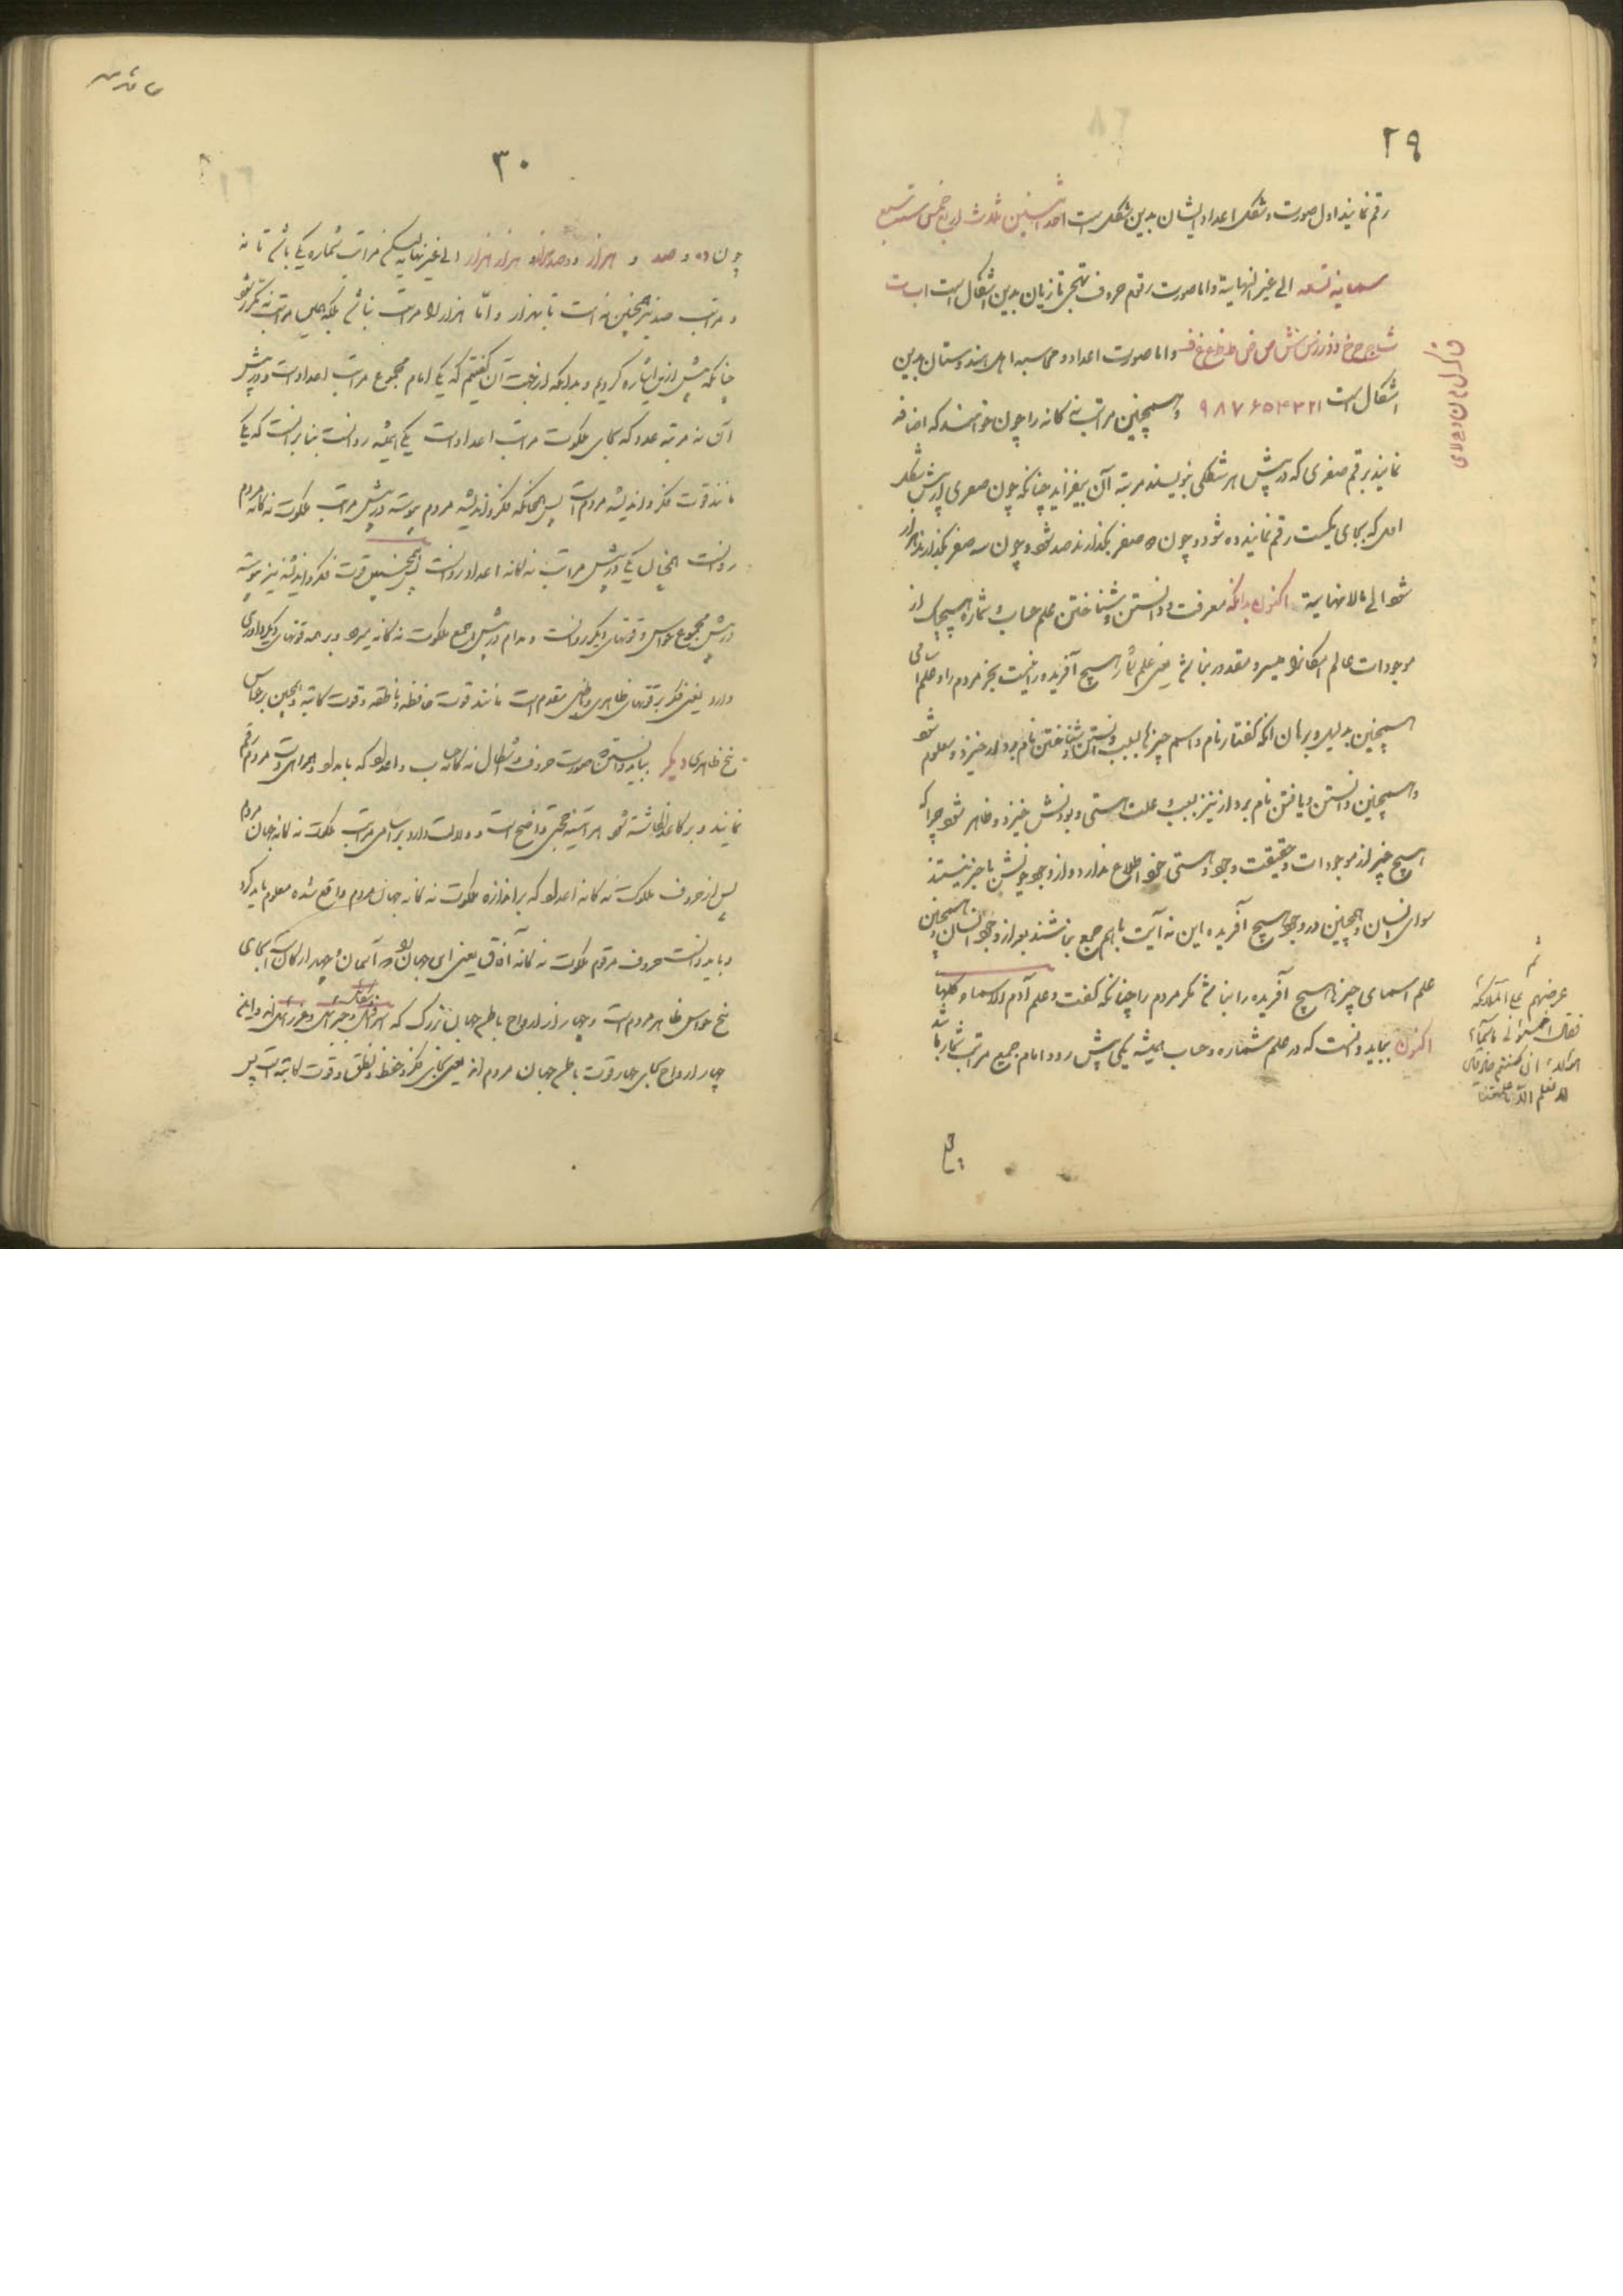 ۲۹
رقم نمایند اول صورت و شکل اعداد ایشان بدین شکل است احد اثنین ثلاث اربع خمس ست سبع
ثمانیه تسعه الی غیر النهایة و اما صورت رقوم حروف تهجی تازیان بدین اشکال است ا ب ت
ث ج ح خ د ذ ر ز س ش ص ض ط ظ ع غ ف و اما صورت اعداد و محاسبه اهل هندوستان بدین
اشکال است ۱ ۲ ۳ ۴ ۵ ۶ ۷ ۸ ۹ و همچنین مراتب نه کانه را چون خواهند که اضافه
نمایند برقم صفری که در پیش هر شکلی بنویسند مرتبه آن بیفزاید چنانکه چون صفری در پیش شکل
اول که بجای یکست رقم نمایند ده شود و چون دو صفر بگذارند صد شود و چون سه صفر بگذارند هزار
شود الی مالا نهایة اکنون بدانکه معرفت و دانستن و شناختن علم حساب و شماره هیچیک از
موجودات عالم امکان را میسر و مقدور نباشد یعنی علم شمار هیچ آفریده را نیست بجز مردم را و علم اسامی
همچنین بدلیل و برهان آنکه گفتار نام و اسم چیزها بسبب دانستن و شناختن نام بردار خیزد و معلوم شود
و همچنین دانستن و یافتن نام بردار نیز بسبب و علت هستی و بودنش خیزد و ظاهر شود چرا که
هیچ چیز از موجودات و حقیقت وجود و هستی خود اطلاع ندارد و از وجود خویش با خبر نیستند
سوای انسان و همچنین در وجود هیچ آفریده این نه آیت با هم جمع نباشند بغیر از وجود انسان و همچنین
علم اسمای چیزها هیچ آفریده را نباشد مگر مردم را چنانکه گفت و علم آدم الاسماء کلها
اکنون بباید دانست که در علم شماره و حساب همیشه یکی پیش رود و امام جمیع مراتب شمار باشد
ثم
عرضهم علی الملائکه
فقال انبئونی باسماء
هؤلاء ان کنتم صادقین
لا علم لنا الا ما علمتنا
ق ک ل م ن و ه لا ی
۳۰
چون ده و صد و هزار و صد هزار و هزار هزار الی غیر نهایه لیکن مراتب شماره یکی باشد تا نه
و مراتب صد نیز همچنین نه است تا بهزار و اما هزار را مراتب نباشد بلکه همین مراتب نه مکرر شود
چنانکه پیش ازین اشاره کردیم و بدانکه از جهت آن گفتیم که یکی امام مجموع مراتب اعداد است و در پیش
آن نه مرتبه عدد که بجای ملکوت مراتب اعداد است یکی همیشه روانست بنابرانست که یکی
مانند قوت فکر و اندیشه مردم است پس همچنانکه فکر و اندیشه مردم پیوسته در پیش مراتب ملکوت نه کانه مردم
روانست همچنان یکی در پیش مراتب نه کانه اعداد روانست پس همچنین قوت فکر و اندیشه نیز پیوسته
در پیش مجموع حواس و قوتهای دیگر روانست و مدام در پیش جمع ملکوت نه کانه میرود و بر همه قوتهای دیگر داوری
دارد یعنی فکر بر قوتهای ظاهری و باطنی مقدم است مانند قوت حافظه و ناطقه و قوت کاتبه و همچنین بر حواس
پنج ظاهری دیگر بباید دانستن صورت حروف و اشکال نه کانه حساب و اعداد که بامداد و همراهی دست مردم رقم
نمایند و بر کاغذ نگاشته شود هر آینه حجتی واضح است و دلالت دارد بر اسامی مراتب ملکوت نه کانه جهان مردم
پس از حروف ملوکت نه کانه اعداد که بر اندازه ملکوت نه کانه جهان مردم واقع شده معلوم باید کرد
و باید دانست حروف مرقوم ملکوت نه کانه آفاق یعنی این جهان را که آسمان و چهار ارکان است بجای
پنج حواس ظاهر مردم است و چهار از ارواح باطن جهان بزرگ که اسرافیل و جبرئیل و میکائیل و عزرائیل اند و اینها
چهار ارواح بجای چهار قوت باطن جهان مردم اند یعنی بجای فکر و حفظ و نطق و قوت کاتبه است پس